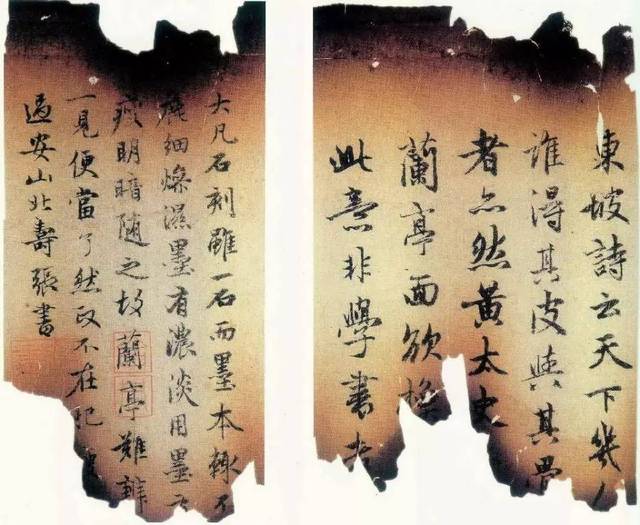 東坡詩云天下幾人
誰得其皮與其骨
者亦然黃太史
蘭亭面欲換
此意非學書者
大凡石刻雖一石而墨本輒不
麁細燥濕墨有濃淡用墨
瘦明暗隨之故蘭亭難辨
一見便當了然政不在肥
過安山北壽張書